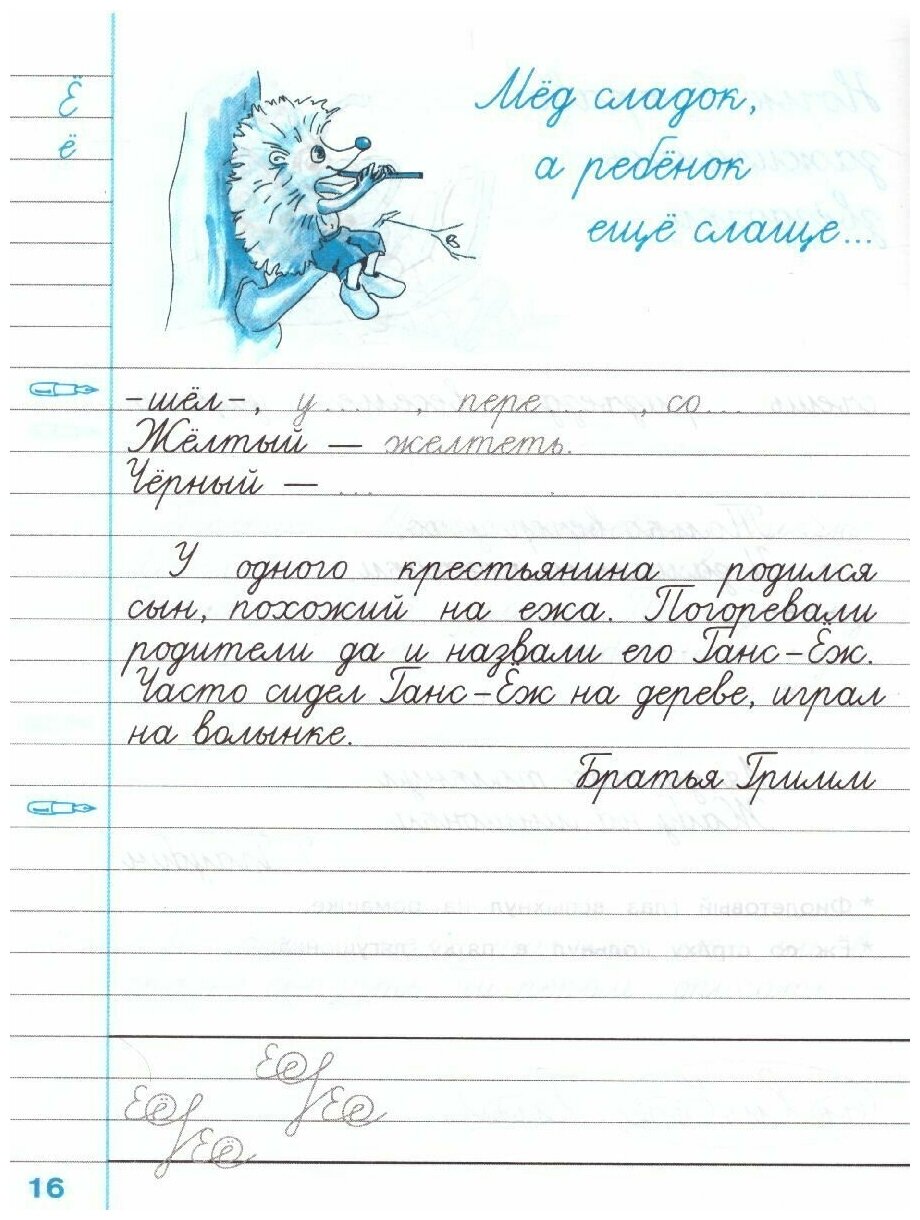 Ё
ё
Мёд сладок,
а ребёнок
ещё слаще...
-шёл-, у........, пере......, со....
Жёлтый — желтеть.
Чёрный — ...
У одного крестьянина родился
сын, похожий на ежа. Погоревали
родители да и назвали его Ганс-Ёж.
Часто сидел Ганс-Ёж на дереве, играл
на волынке.
Братья Гримм
Её
Её
Её
Её
16